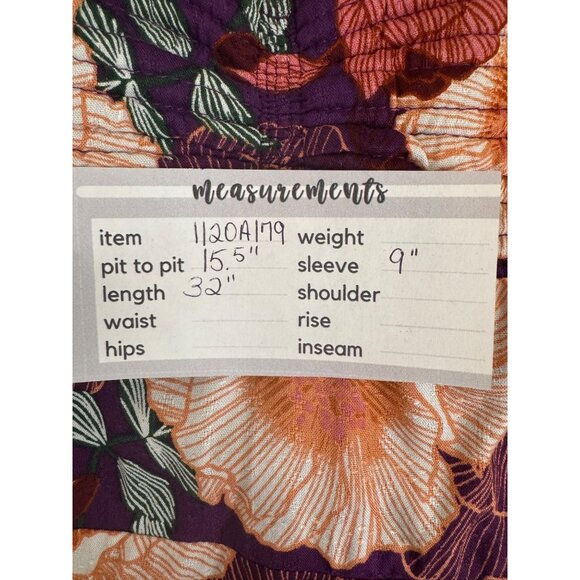 measurements
item 1120A179 weight
pit to pit 15.5" sleeve 9"
length 32" shoulder
waist rise
hips inseam